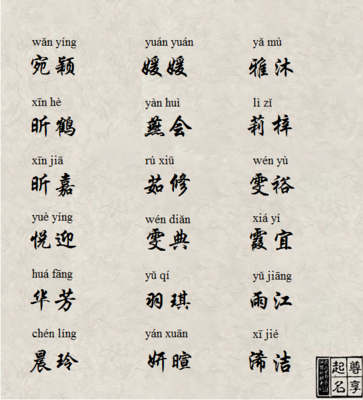 wǎn yíng yuán yuán yǎ mù
宛颖 媛媛 雅沐
xīn hè yàn huì lì zǐ
昕鹤 燕会 莉梓
xīn jiā rú xiū wén yù
昕嘉 茹修 雯裕
yuè yíng wén diǎn xiá yí
悦迎 雯典 霞宜
huá fāng yǔ qí yǔ jiāng
华芳 羽琪 雨江
chén líng yán xuān xī jié
晨玲 妍暄 浠洁
尊享
起名